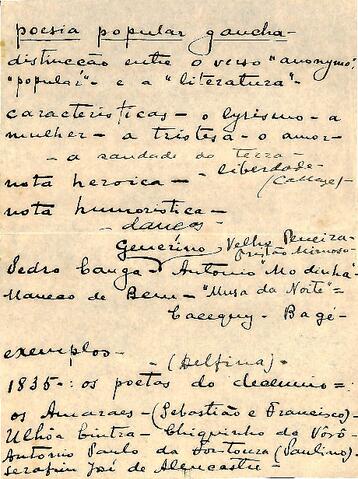 poesia popular gaucha-
distincção entre o verso "anonymo",
"popular" - e a "literatura"-
caracteristicas - o lyrismo - a
mulher - a tristesa - o amor-
- a saudade da terra-
nota heroica - - liberdade-
(Callage)-
nota humoristica-
- danças-
Generino Velho Pereira-
Pedro Canga - Antonio "Modinha"-
Maneco de Bem - "Musa da Noite"=
Cacequy - Bagé-
exemplos-
- (Delfina)-
1835-: os poetas do decennio=
os Amaraes-(Sebastião e Francisco)-
Ulhôa Cintra- Chiquinho da Vóvó-
Antonio Paulo da Fontoura (Paulino)-
Serafim José de Alencastre-